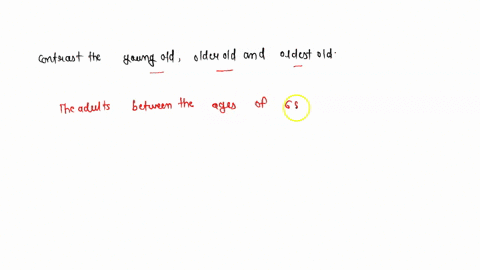 contrast the young old, older old and oldest old.
The adults between the ages of 65